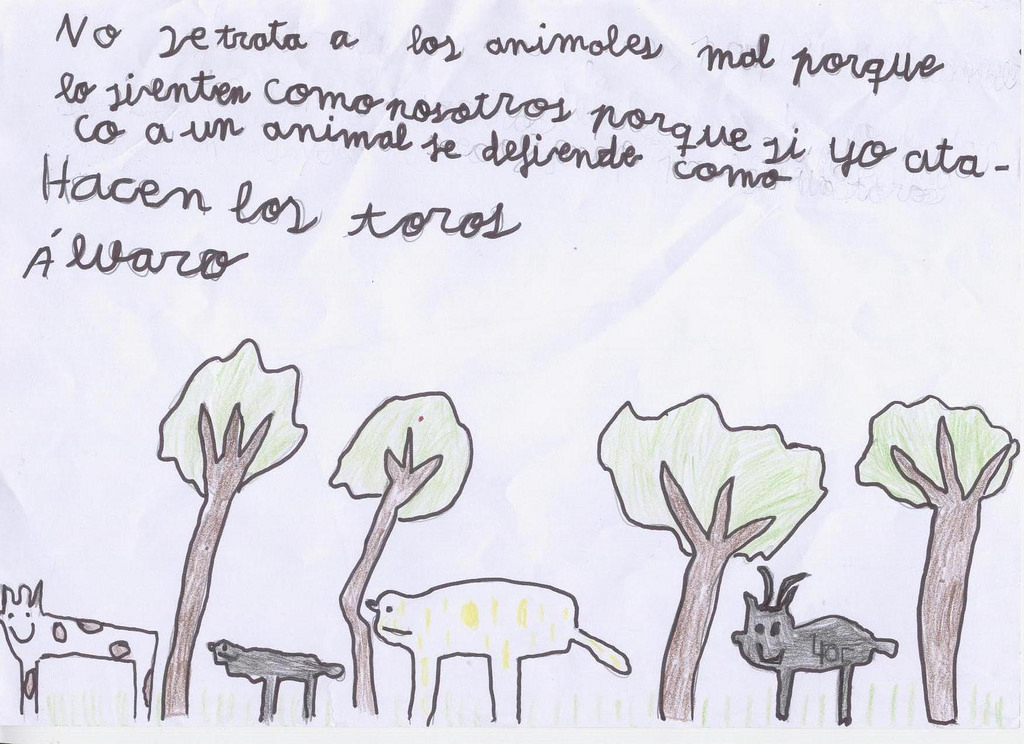 No se trata a los animales mal porque
lo sienten como nosotros porque si yo ata-
co a un animal se defiende como
Hacen los toros
Álvaro